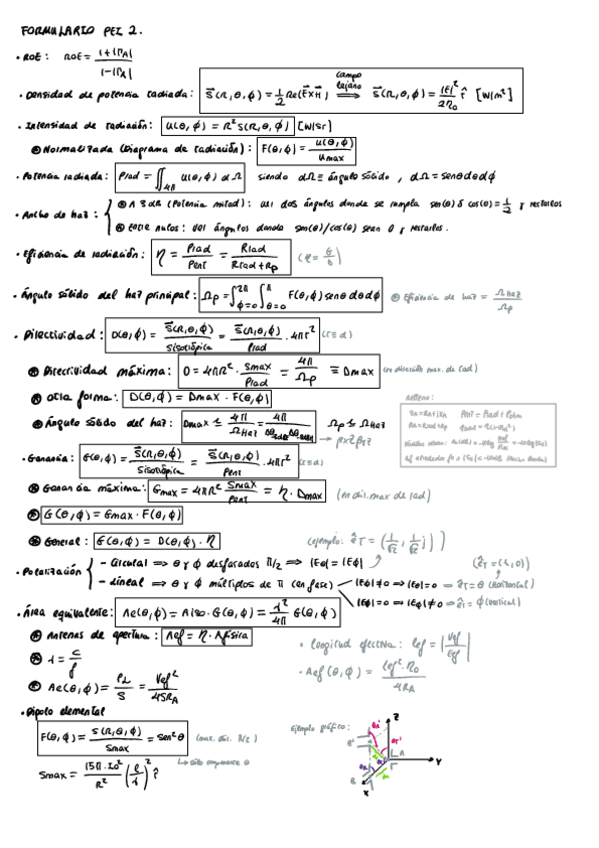 FORMULARIO PEI 2.
· ROE: ROE = (1+|Γ_A|)/(1-|Γ_A|)
· Densidad de potencia radiada: S⃗(r,θ,φ) = 1/2 Re(E⃗×H⃗) ⟹ (campo lejano) S⃗(r,θ,φ) = |E|²/(2η₀) r̂ [W/m²]
· Intensidad de radiación: U(θ,φ) = R² S(R,θ,φ) [W/Sr]
⊛ Normalizada (Diagrama de radiación): F(θ,φ) = U(θ,φ)/Umax
· Potencia radiada: Prad = ∬_4π U(θ,φ) dΩ siendo dΩ ≡ ángulo sólido, dΩ = senθdθdφ
· Ancho de haz:
⊛ A 3dB (Potencia mitad): los dos ángulos donde se cumpla sen(θ) ó cos(θ) = 1/2 y restarlos
⊛ Entre nulos: los ángulos donde sen(θ)/cos(θ) sean 0 y restarlos.
· Eficiencia de radiación: η = Prad/Pent = Rrad/(Rrad+Rp) (η = G/D)
· Ángulo sólido del haz principal: Ωp = ∫_{φ=0}^{2π} ∫_{θ=0}^{π} F(θ,φ) senθdθdφ ⊛ Eficiencia de haz = Ω_Haz/Ωp
· Directividad: D(θ,φ) = S⃗(R,θ,φ)/Sisotrópica = S⃗(R,θ,φ)/Prad · 4πr² (r≡d)
⊛ Directividad máxima: D = 4πR² · Smax/Prad = 4π/Ωp ≡ Dmax (en dirección max. de rad)
⊛ Otra forma: D(θ,φ) = Dmax · F(θ,φ)
⊛ Ángulo sólido del haz: Dmax ≤ 4π/Ω_Haz = Ωp ≤ Ω_Haz
Relleno:
· Ganancia: G(θ,φ) = S⃗(R,θ,φ)/Sisotrópica = S⃗(R,θ,φ)/Pent · 4πr² (r≡d)
⊛ Ganancia máxima: Gmax = 4πR² Smax/Pent = η · Dmax (en dir. max de rad)
⊛ G(θ,φ) = Gmax · F(θ,φ)
⊛ General: G(θ,φ) = D(θ,φ) · η (ejemplo: êT = (1/√2, 1/√2 j))
· Polarización
- Circular ⟹ θ y φ desfasados π/2 ⟹ |Eθ| = |Eφ| (êT = (1,0))
- Lineal ⟹ θ y φ múltiplos de π (en fase) |Eθ| ≠ 0 ⟹ |Eφ| = 0 ⟹ êT = θ (Horizontal)
|Eθ| = 0 ⟹ |Eφ| ≠ 0 ⟹ êT = φ (Vertical)
· Área equivalente: Ae(θ,φ) = Aiso · G(θ,φ) = λ²/4π G(θ,φ)
⊛ Antenas de apertura: Aef = η · Afísica
· Longitud efectiva: lef = |Vef/Eef|
⊛ λ = c/f
· Aef(θ,φ) = lef² · η₀/4R_A
⊛ Ae(θ,φ) = P_L/S = Vef²/4SR_A
· Dipolo elemental
F(θ,φ) = S(R,θ,φ)/Smax = Sen²θ (max. dir. π/2)
↳ sólo componente θ
Smax = 15π · I₀²/R² (l/λ)² r̂
Ejemplo gráfico:
Z
Y
X